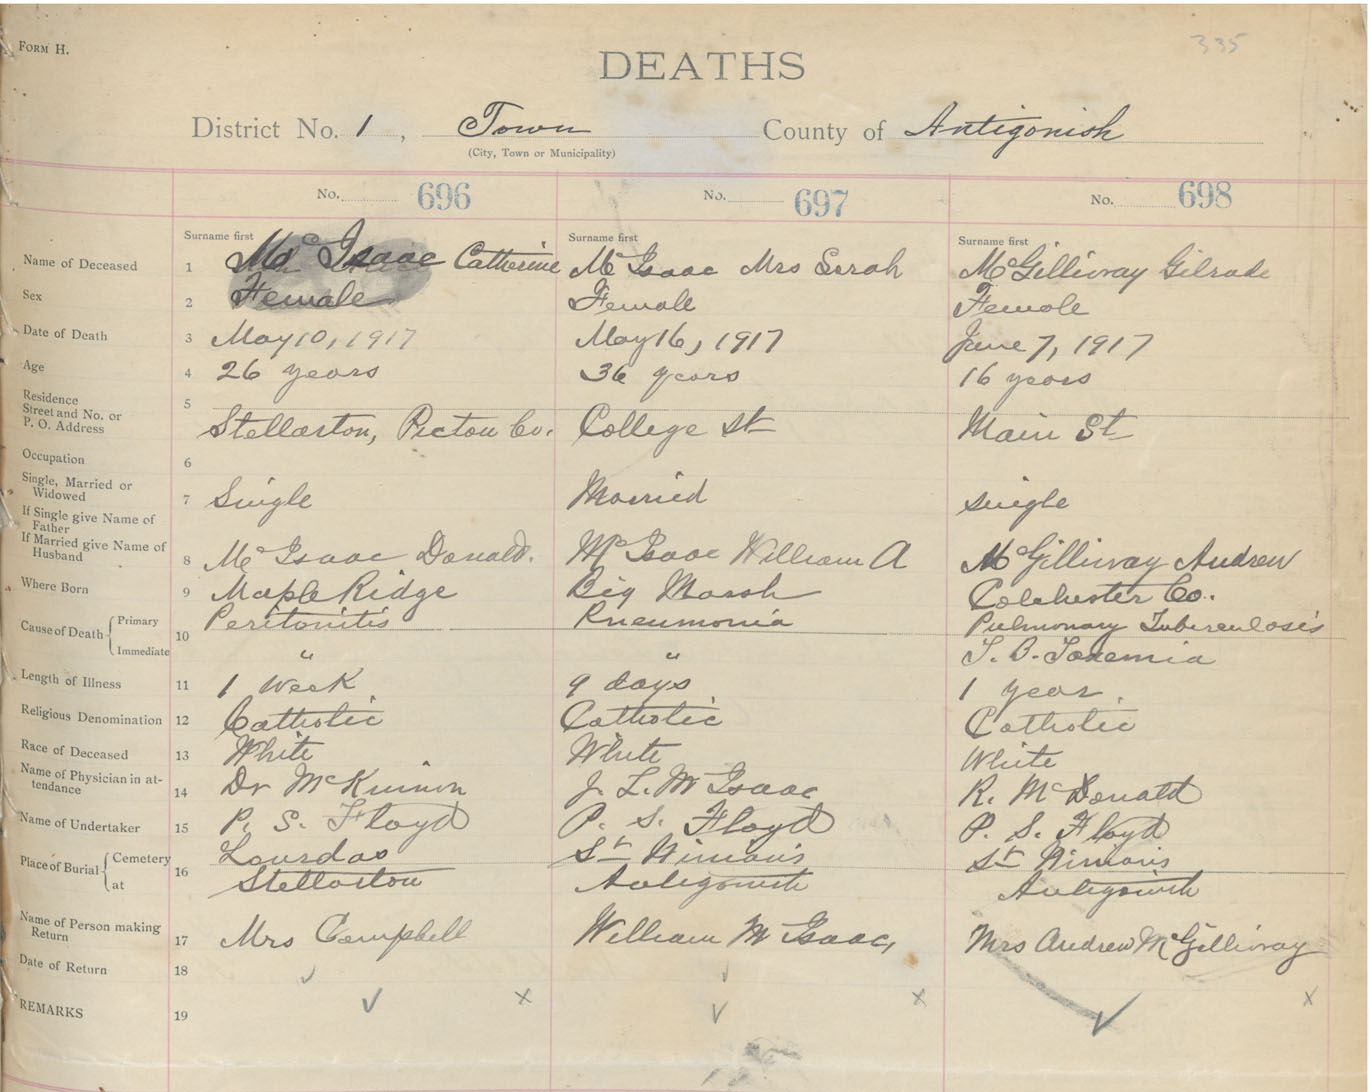 FORM H.
335
DEATHS
District No. 1, Town County of Antigonish
(City, Town or Municipality)
No. 696 No. 697 No. 698
Surname first Surname first Surname first
Name of Deceased 1 McIsaac Catherine McIsaac Mrs Sarah McGillivray Gilrade
Sex 2 Female Female Female
Date of Death 3 May 10, 1917 May 16, 1917 June 7, 1917
Age 4 26 years 36 years 16 years
Residence
Street and No. or
P. O. Address 5 Stellarton, Pictou Co. College St Main St
Occupation 6
Single, Married or
Widowed 7 Single Married single
If Single give Name of
Father
If Married give Name of
Husband 8 McIsaac Donald. McIsaac William A McGillivray Andrew
Where Born 9 Maple Ridge Big Marsh Colchester Co.
Cause of Death { Primary 10 Peritonitis Pneumonia Pulmonary Tuberculosis
Immediate " " T. B. Toxemia
Length of Illness 11 1 Week 9 days 1 year.
Religious Denomination 12 Catholic Catholic Catholic
Race of Deceased 13 White White White
Name of Physician in at-
tendance 14 Dr McKinnon J. L. McIsaac R. McDonald
Name of Undertaker 15 P. S. Floyd P. S. Floyd P. S. Floyd
Place of Burial { Cemetery 16 Lourdas St Ninian's St Ninian's
at Stellarton Antigonish Antigonish
Name of Person making
Return 17 Mrs Campbell William McIsaac, Mrs Andrew McGillivray
Date of Return 18
REMARKS 19